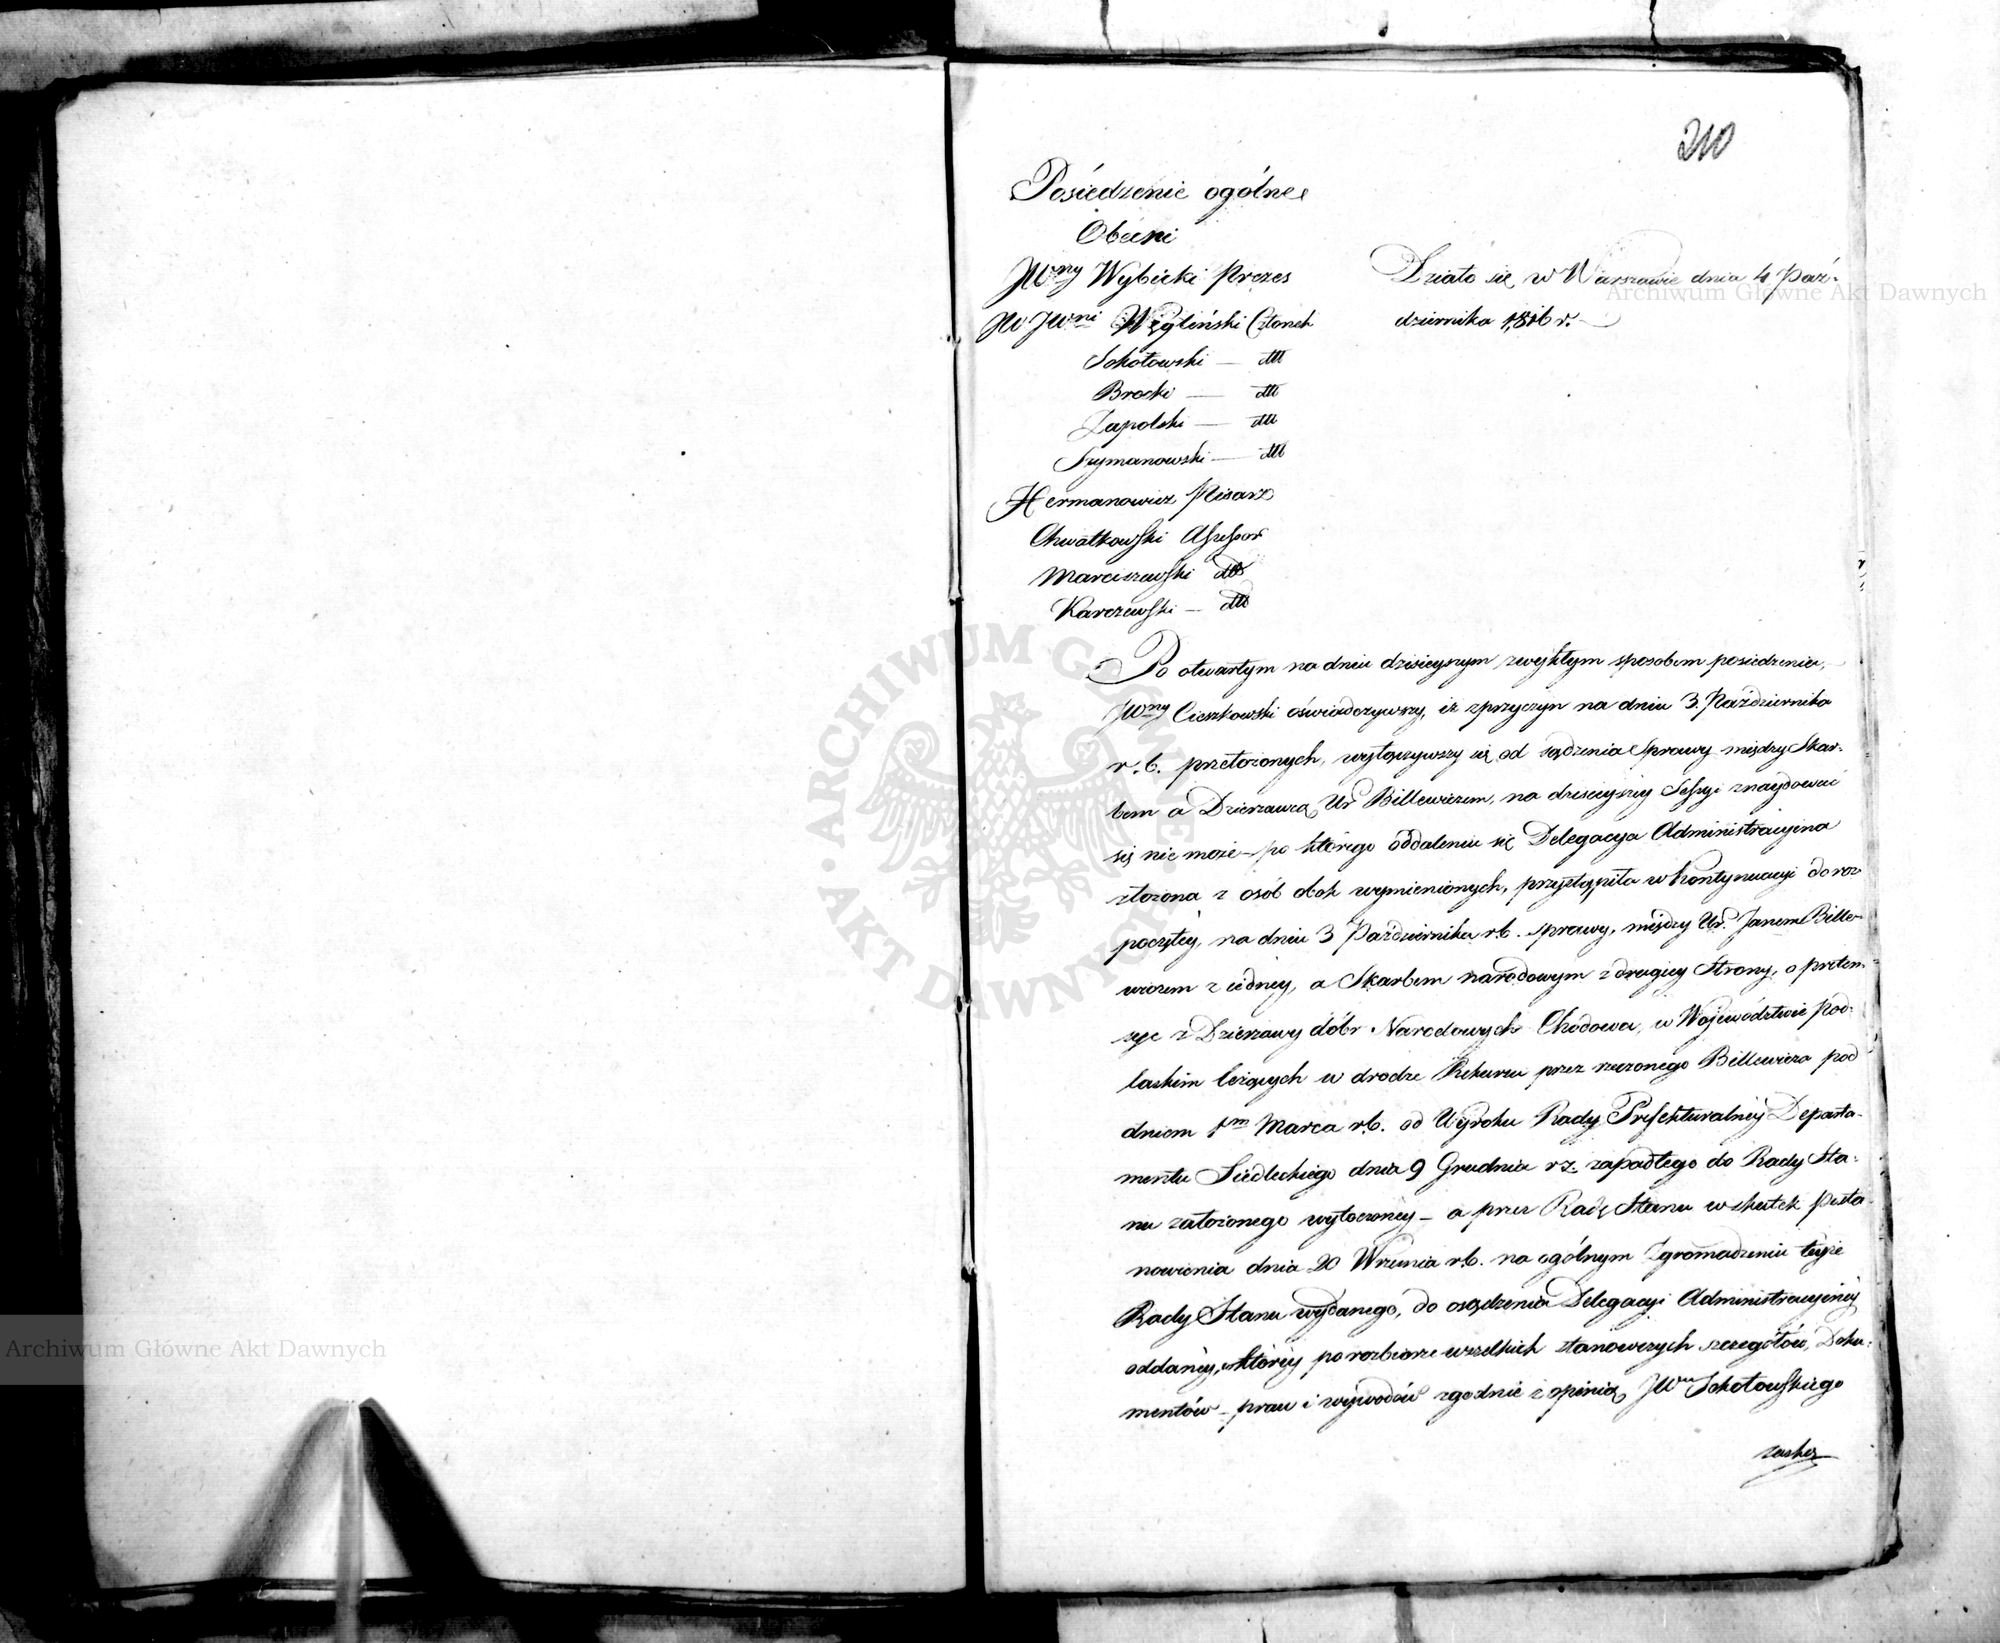 210
Posiedzenie ogólne
Obecni
JWny Wybicki Prezes
Działo się w Warszawie dnia 4 Paź-
dziernika 1816 r.
JW JWni Węgleński Członek
Sokołowski — dtt
Brocki — dtt
Zapolski — dtt
Szymanowski — dtt
Hermanowicz Pisarz
Chwatkowski Assessor
Marciszewski dtt
Karczewski — dtt
Po otwartym na dniu dzisieyszym zwykłym sposobem posiedzeniu,
JWny Cieszkowski oświadczywszy, iż zprzyczyn na dniu 3. Października
r. b. przełożonych, wyłączywszy się od sądzenia Sprawy między Skar-
bem a Dzierzawcą Ur Billewiczem, na dzisieyszey Sessyi znaydować
się nie może — po którego oddaleniu się Delegacya Administracyina
złożona z osób obok wymienionych, przystąpiła w kontynuacyi do roz
poczętey, na dniu 3 Października r.b. sprawy, między Ur. Janem Bille-
wiczem z iedney, a Skarbem narodowym z drugiey Strony, o preten-
sye z Dzierzawy dóbr Narodowych Chodowa, w Województwie Pod-
laskim leżących w drodze Rekursu przez rzeczonego Billewicza pod
dniem 1m Marca r.b. od Wyroku Rady Prefekturalney Departa-
mentu Siedleckiego dnia 9 Grudnia r.z. zapadłego do Rady Sta-
nu założonego wytoczoney — a przez Radę Stanu w skutek Posta-
nowienia dnia 20 Września r.b. na ogólnym Zgromadzeniu teyże
Rady Stanu wydanego, do osądzenia Delegacyi Administracyiney
oddaney, którey po rozbiorze wszelkich stanowczych szczegółów, Doku-
mentów — praw i wywodów zgodnie z opinią JWo Sokołowskiego
Archiwum Główne Akt Dawnych
Archiwum Główne Akt Dawnych
ARCHIWUM GŁÓWNE AKT DAWNYCH